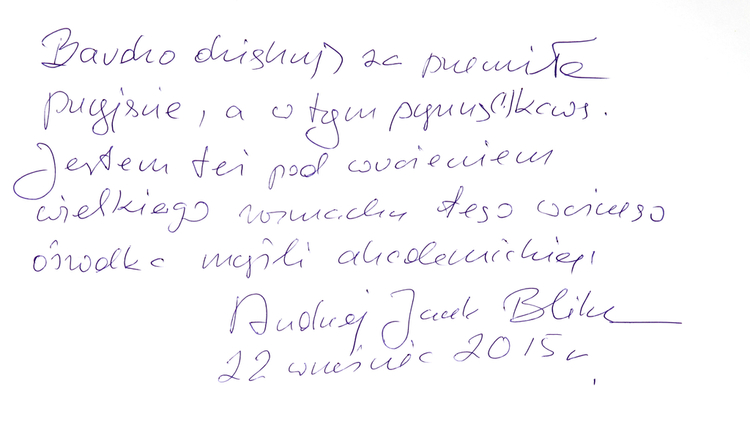 Bardzo dziękuję za przemiłe
przyjęcie, a w tym pyszną kawę.
Jestem też pod wrażeniem
wielkiego rozmachu tego ważnego
ośrodka myśli akademickiej
Andrzej Jacek Blikle
22 wrześnie 2015 r.